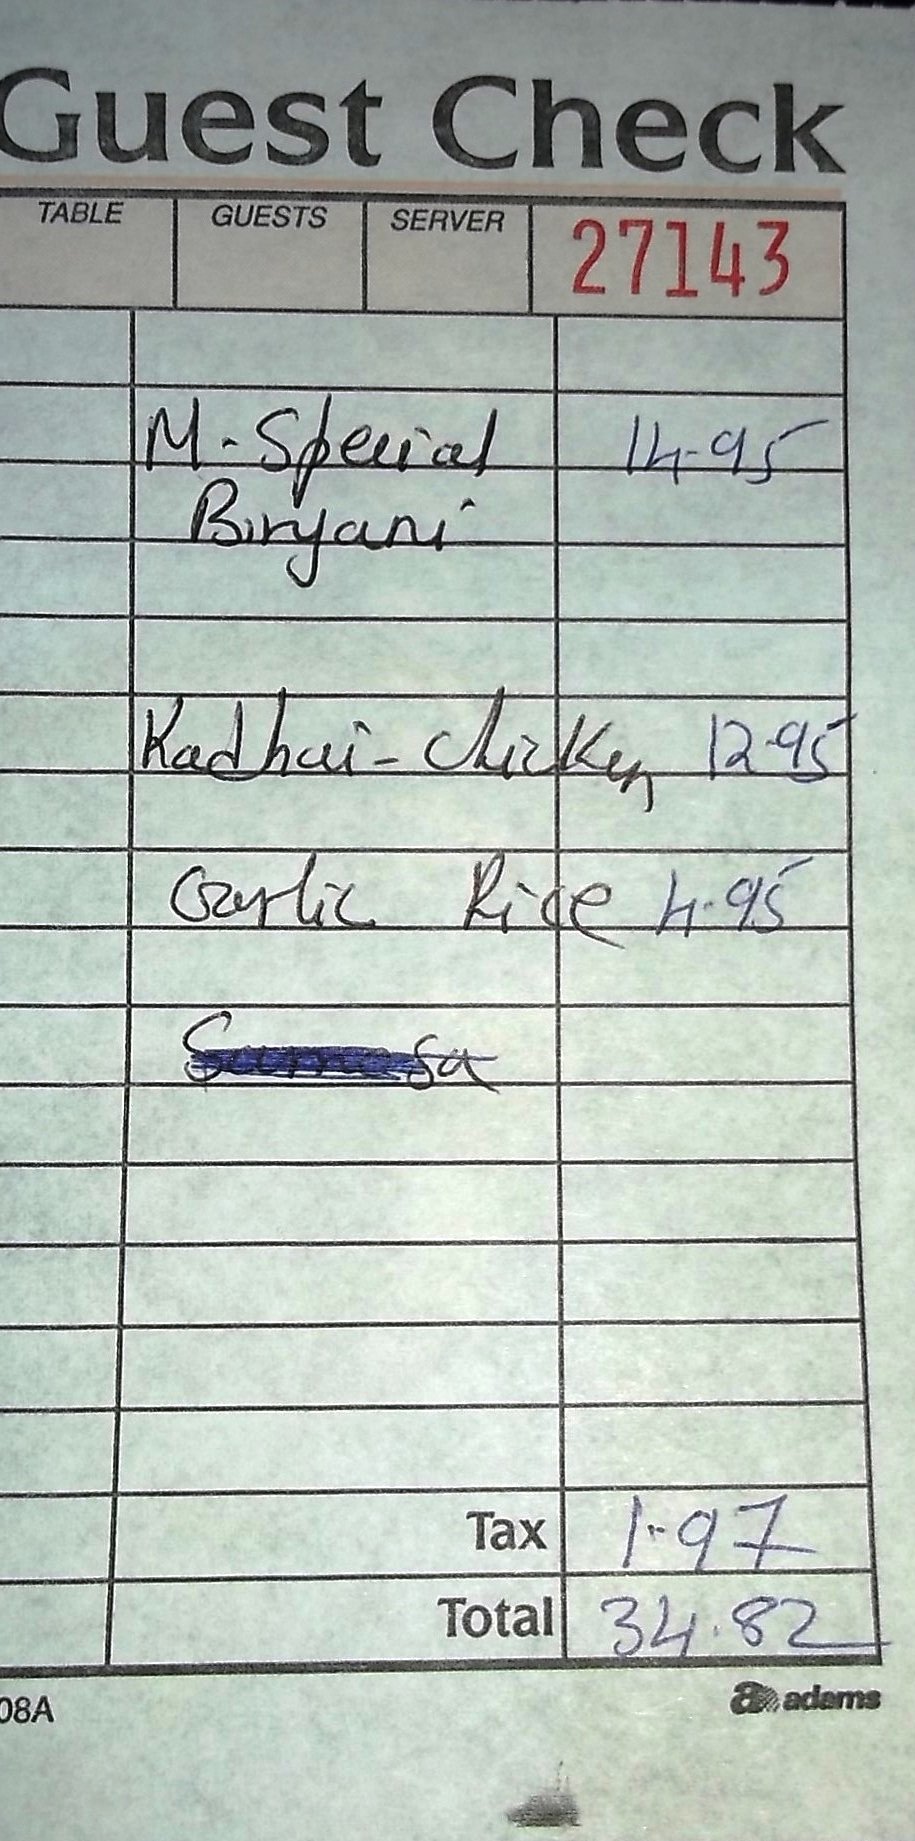 Guest Check
TABLE GUESTS SERVER 27143
M-Special 14-95
Biryani
Kadhai-Chicken 12-95
Garlic Rice 4-95
Samosa
Tax 1-97
Total 34.82
08A adams